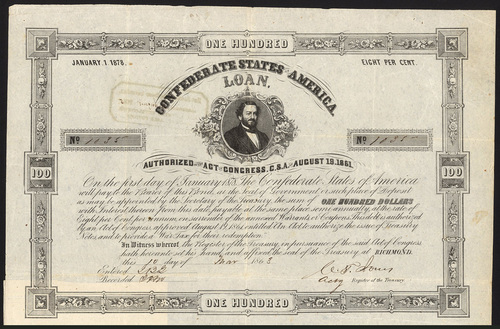 ONE HUNDRED
JANUARY 1 1878.
EIGHT PER CENT.
CONFEDERATE STATES AMERICA
LOAN.
No 1035
No 1035
AUTHORIZED BY ACT OF CONGRESS, C.S.A. OF AUGUST 19.1861.
100
100
On the first day of January 1878 The Confederate States of America
will pay to the Bearer of this Bond, at the Seat of Government or such place of Deposit
as may be appointed by the Secretary of the Treasury, the sum of ONE HUNDRED DOLLARS
with Interest thereon from this date payable at the same place semi annually at the rate of
Eight per Cent per annum on surrender of the annexed Warrants or Coupons. This debt is authorized
by an Act of Congress approved August 19, 1861, entitled An Act to authorize the issue of Treasury
Notes, and to provide a War Tax for their redemption.
In Witness whereof, the Register of the Treasury, in pursuance of the said Act of Congress
hath hereunto set his hand, and affixed the Seal of the Treasury at RICHMOND.
this day of Mar 1863
Entered
Recorded
Register of the Treasury
ONE HUNDRED